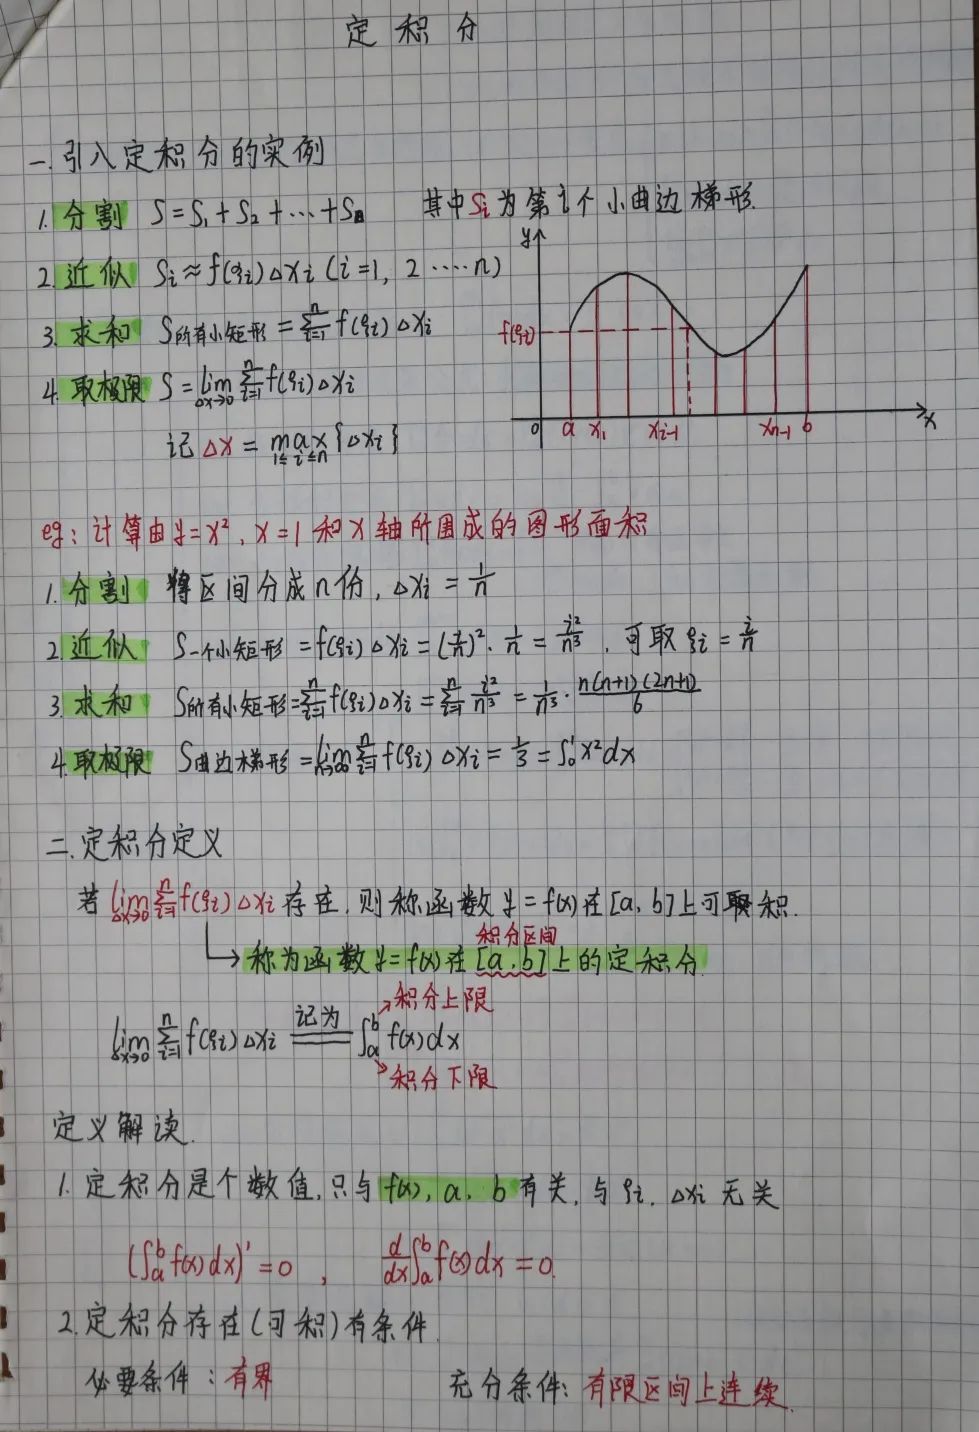 定积分
一.引入定积分的实例
1.分割 S=S₁+S₂+⋯+Sₙ 其中Sᵢ为第i个小曲边梯形.
2.近似 Sᵢ≈f(ξᵢ)△xᵢ(i=1, 2⋯⋯n)
3.求和 S所有小矩形=∑ᵢ₌₁ⁿf(ξᵢ)△xᵢ
4.取极限 S=lim_{△x→0}∑ᵢ₌₁ⁿf(ξᵢ)△xᵢ
记△x=max_{1≤i≤n}{△xᵢ}
y
f(ξᵢ)
0 a x₁ xᵢ₋₁ xₙ₋₁ b x
eg:计算由y=x²,x=1和x轴所围成的图形面积
1.分割 将区间分成n份,△xᵢ=1/n
2.近似 S一个小矩形=f(ξᵢ)△xᵢ=(i/n)²·1/n=i²/n³,可取ξᵢ=i/n
3.求和 S所有小矩形=∑ᵢ₌₁ⁿf(ξᵢ)△xᵢ=∑ᵢ₌₁ⁿ i²/n³=1/n³·n(n+1)(2n+1)/6
4.取极限 S曲边梯形=lim_{n→∞}∑ᵢ₌₁ⁿf(ξᵢ)△xᵢ=1/3=∫₀¹x²dx
二.定积分定义
若lim_{△x→0}∑ᵢ₌₁ⁿf(ξᵢ)△xᵢ存在,则称函数y=f(x)在[a,b]上可积.
积分区间
→称为函数y=f(x)在[a,b]上的定积分.
积分上限
lim_{△x→0}∑ᵢ₌₁ⁿf(ξᵢ)△xᵢ 记为 ∫ₐᵇf(x)dx
积分下限
定义解读.
1.定积分是个数值,只与f(x),a,b有关,与ξᵢ,△xᵢ无关
(∫ₐᵇf(x)dx)'=0, d/dx∫ₐᵇf(x)dx=0.
2.定积分存在(可积)有条件.
必要条件:有界 充分条件:有限区间上连续.